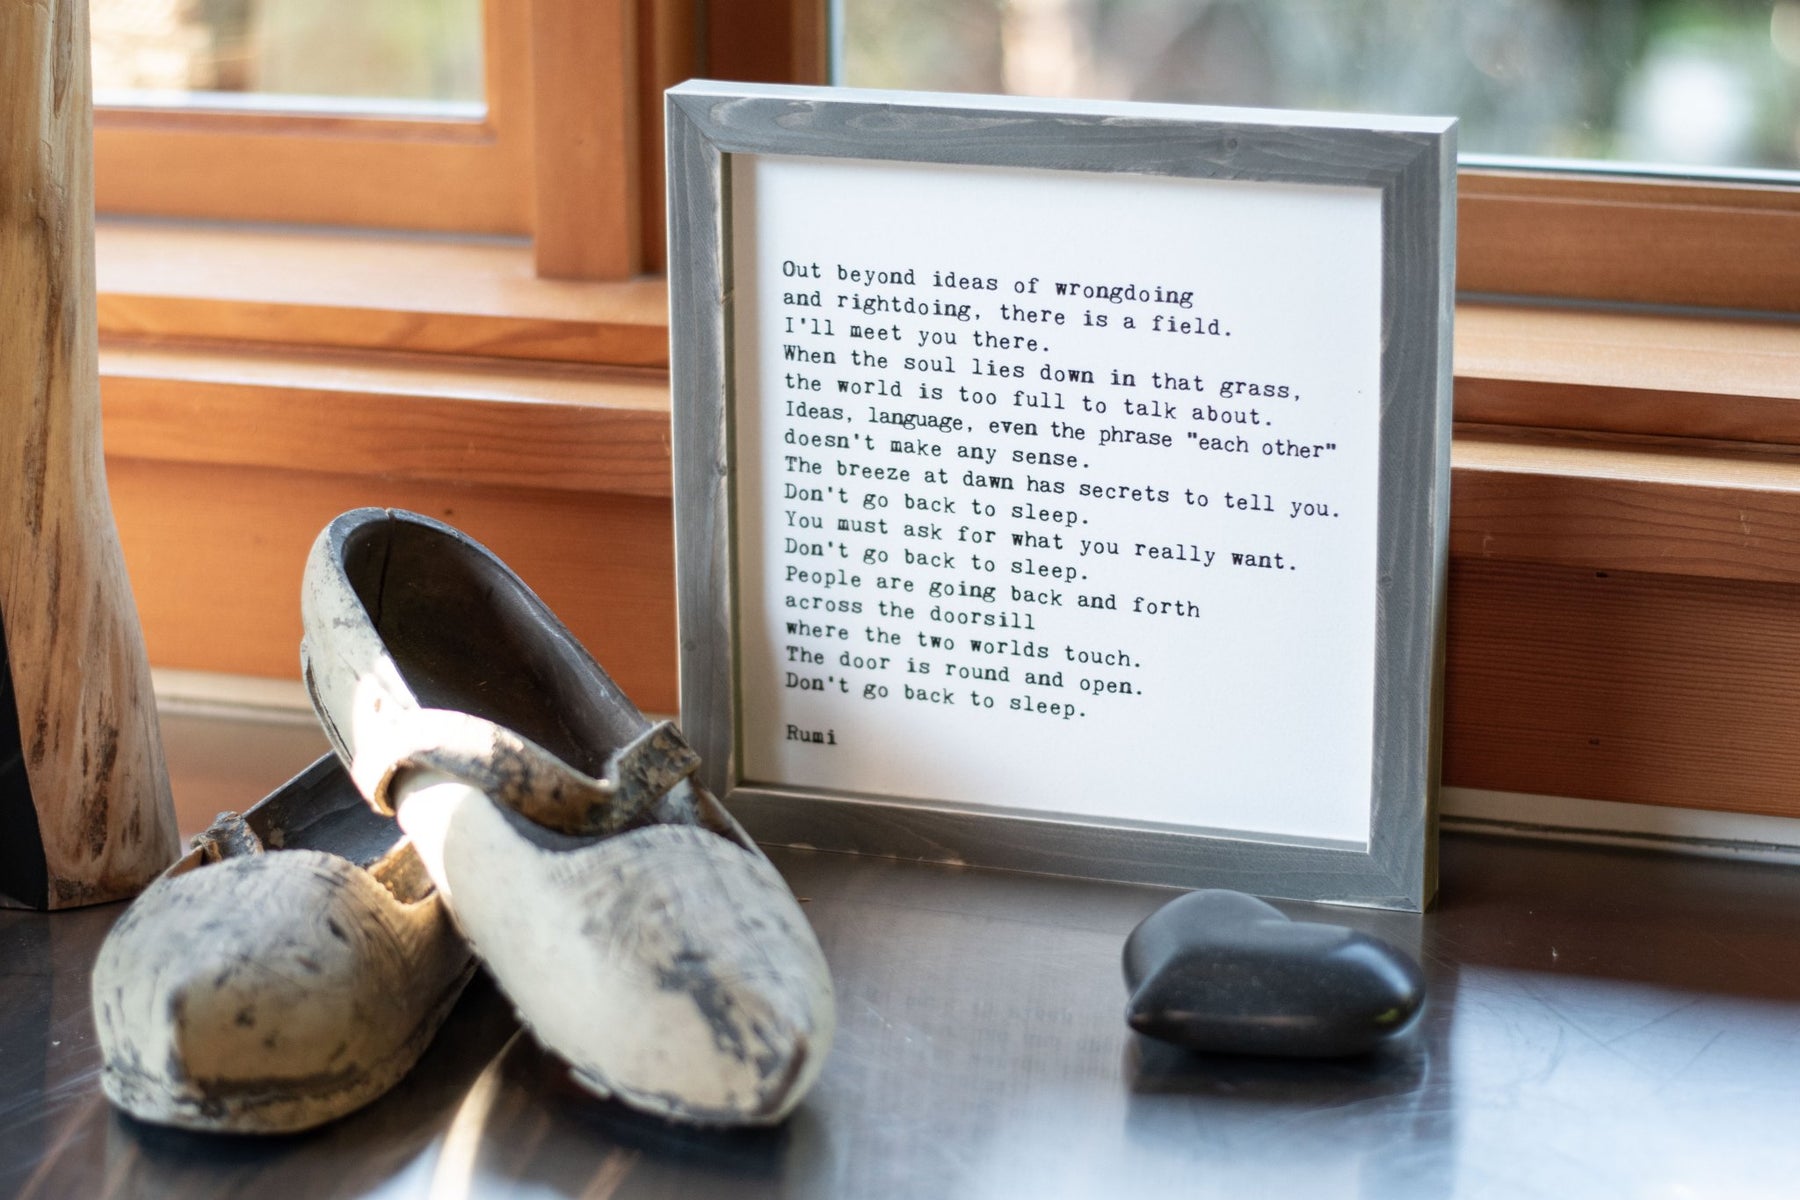 Out beyond ideas of wrongdoing
and rightdoing, there is a field.
I'll meet you there.
When the soul lies down in that grass,
the world is too full to talk about.
Ideas, language, even the phrase "each other"
doesn't make any sense.
The breeze at dawn has secrets to tell you.
Don't go back to sleep.
You must ask for what you really want.
Don't go back to sleep.
People are going back and forth
across the doorsill
where the two worlds touch.
The door is round and open.
Don't go back to sleep.
Rumi